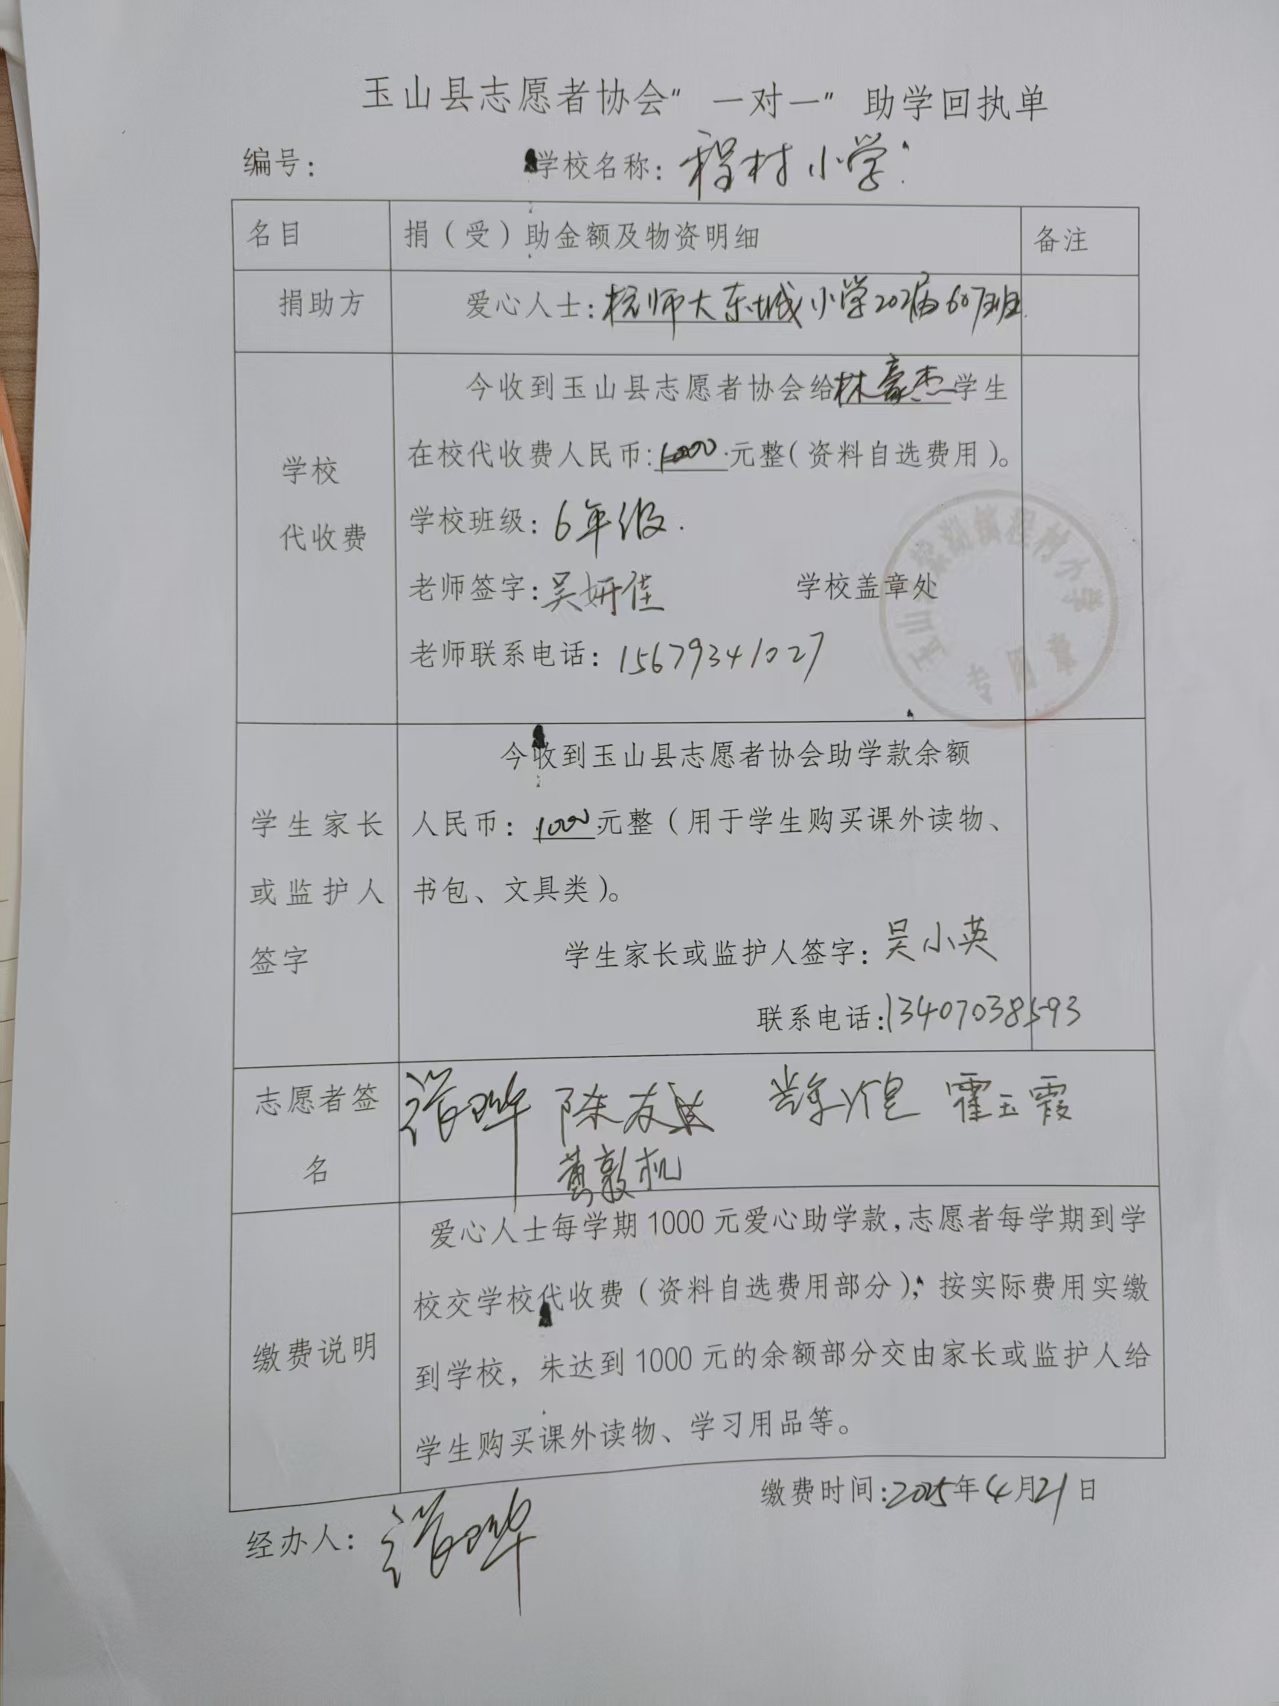 玉山县志愿者协会“一对一”助学回执单
编号： 学校名称：程村小学
名目 捐（受）助金额及物资明细 备注
捐助方 爱心人士：杭师大东城小学202届607班
学校代收费
今收到玉山县志愿者协会给林豪杰学生
在校代收费人民币：1000元整（资料自选费用）。
学校班级：6年级.
老师签字：吴妍佳 学校盖章处
老师联系电话：15679341027
玉山 镇程村小学
专用章
学生家长或监护人签字
今收到玉山县志愿者协会助学款余额
人民币：1000元整（用于学生购买课外读物、
书包、文具类）。
学生家长或监护人签字：吴小英
联系电话：13407038593
志愿者签名
陈友 霍玉霞
黄敦机
缴费说明
爱心人士每学期1000元爱心助学款，志愿者每学期到学
校交学校代收费（资料自选费用部分），按实际费用实缴
到学校，未达到1000元的余额部分交由家长或监护人给
学生购买课外读物、学习用品等。
缴费时间：2025年4月21日
经办人：